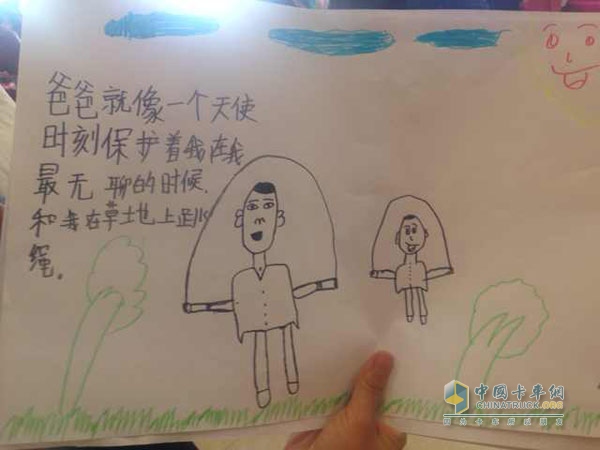 爸爸就像一个天使
时刻保护着我在我
最无聊的时候.
和我在草地上跳
绳。
中国卡车网
CHINATRUCK.ORG